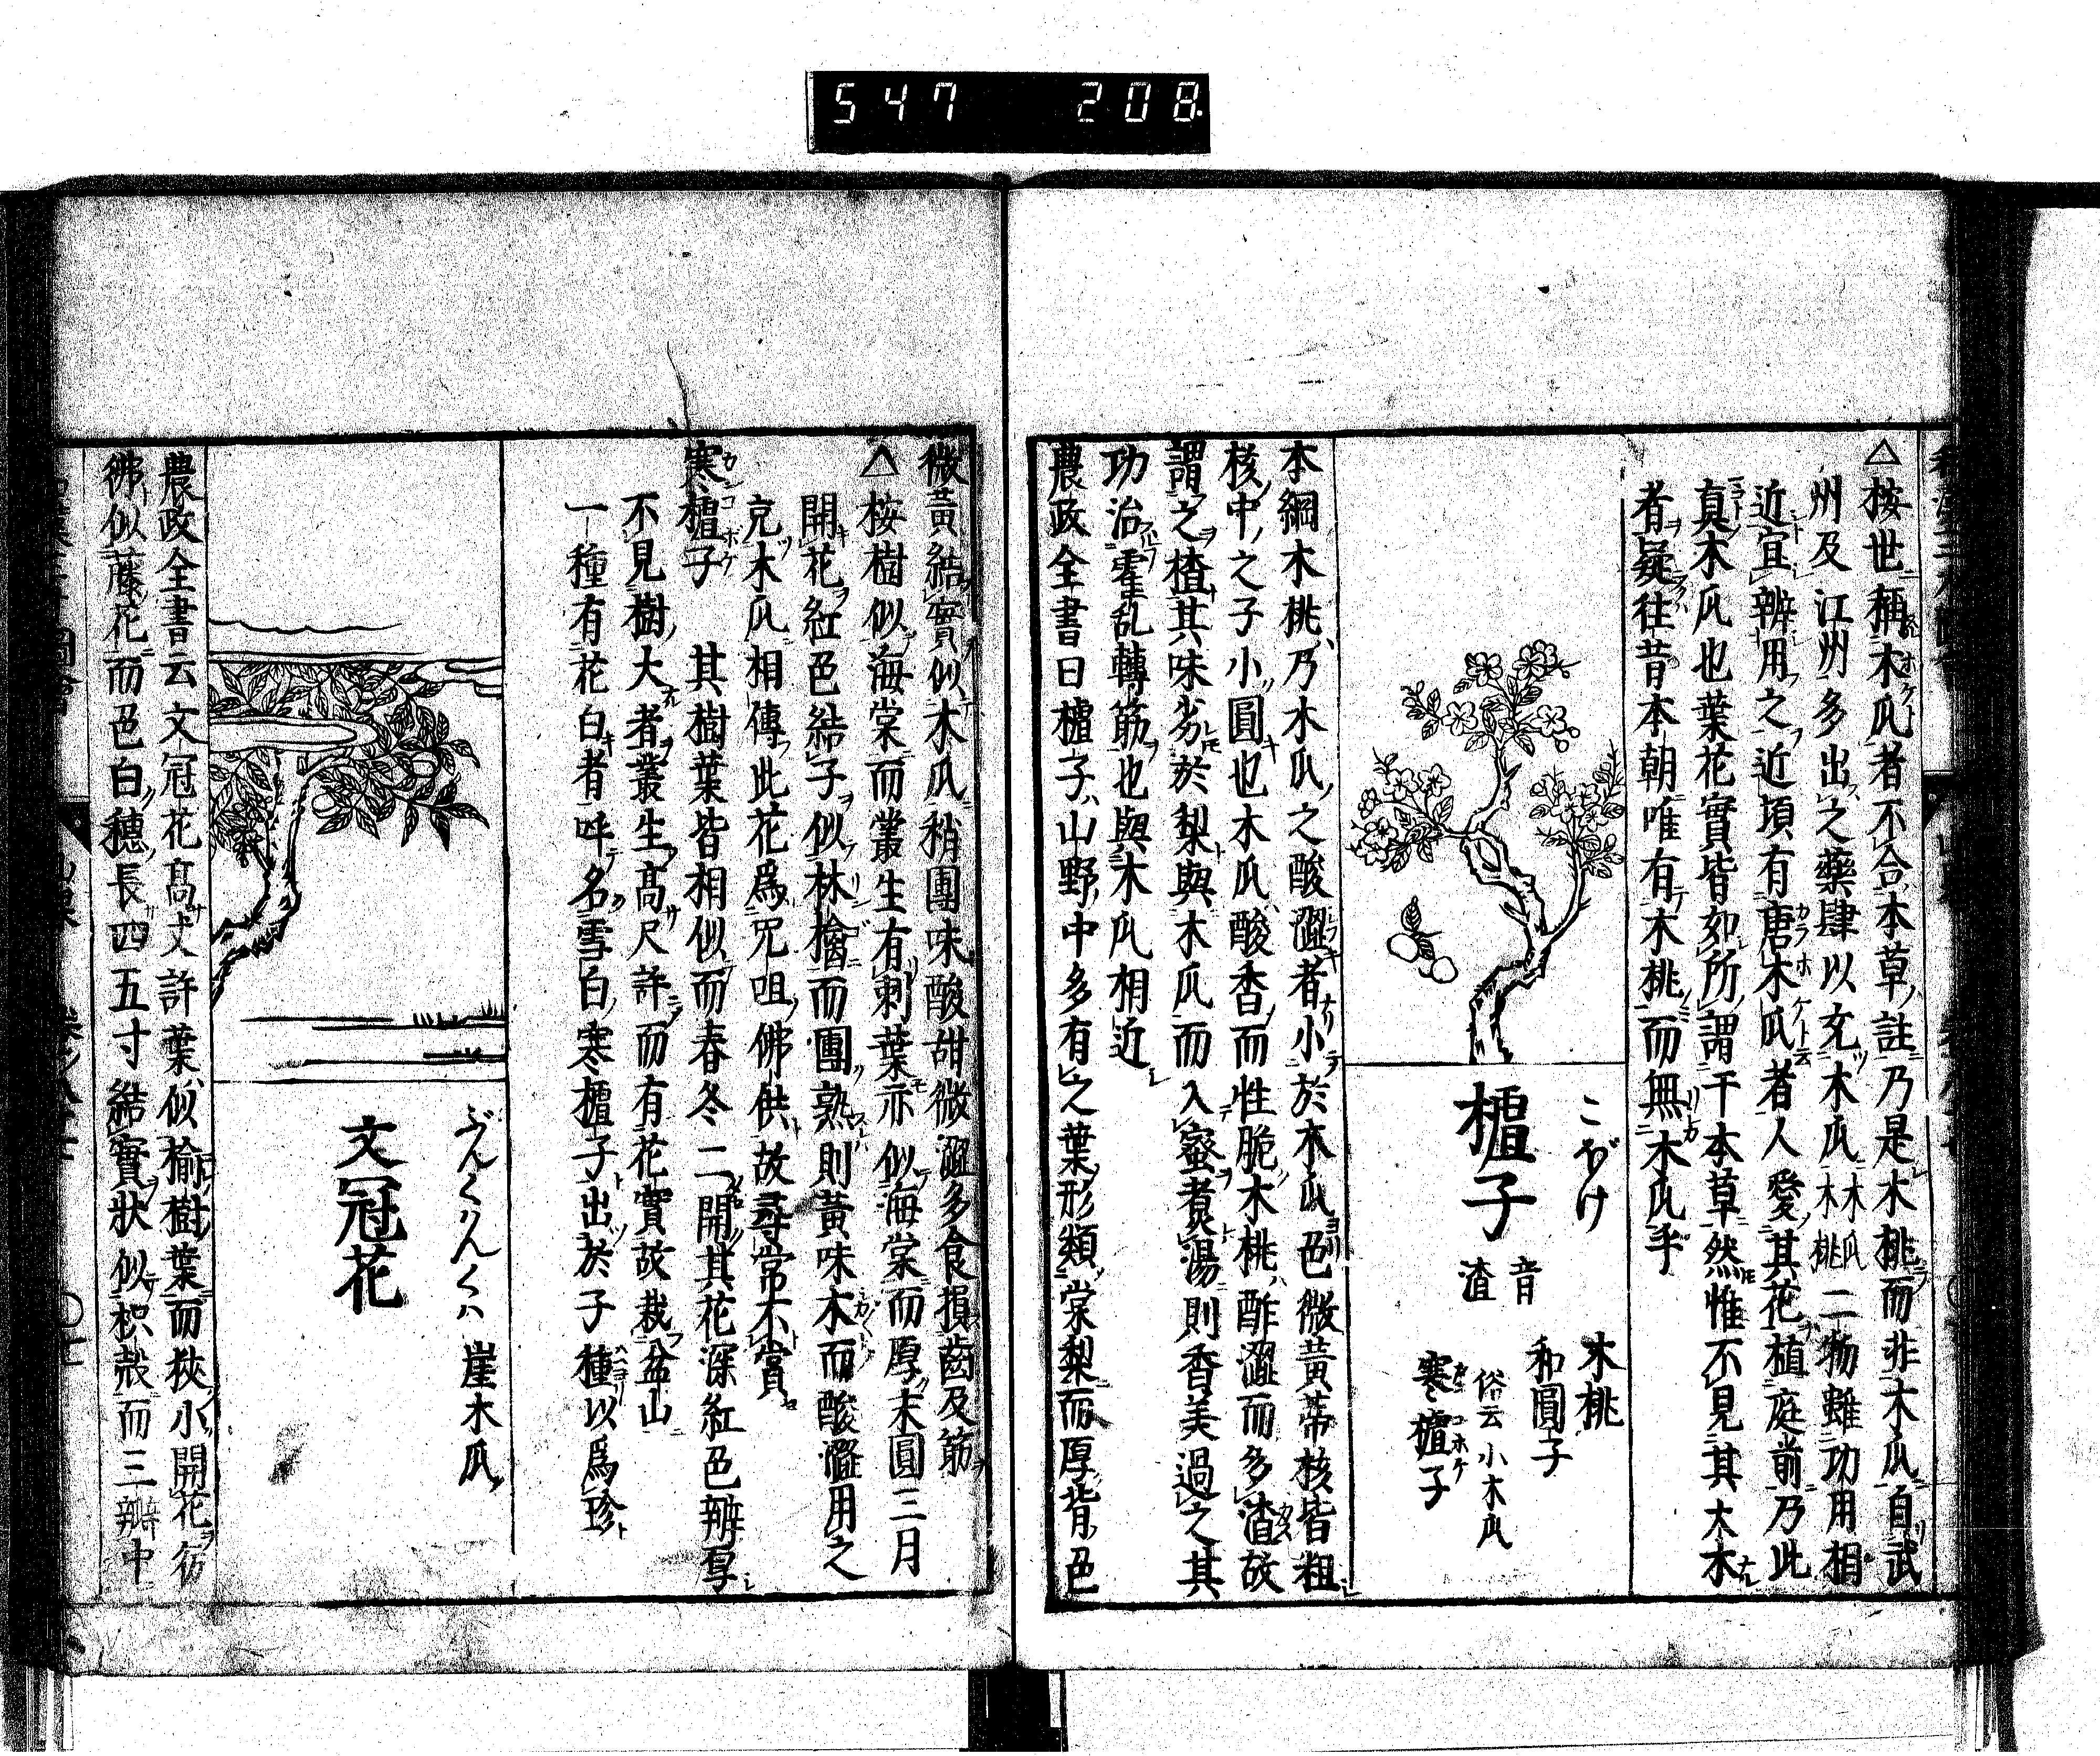 547 208
△桉世稱木瓜者不合本草註乃是木桃而非木瓜自武
州及江州多出之藥肆以充木瓜木瓜木桃二物雖功用相
近宜辨用之近頃有唐木瓜者人愛其花植庭前乃此
真木瓜也葉花實皆如所謂于本草然惟不見其大木
者疑往昔本朝唯有木桃而無木瓜乎
こぼけ
樝子
音渣
木桃
和圓子
俗云小木瓜
寒樝子
本綱木桃乃木瓜之酸澀者小於木瓜色微黃蒂核皆粗
核中之子小圓也木瓜酸香而性脆木桃酢澀而多渣故
謂之樝其味劣於梨與木瓜而入蜜煮湯則香美過之其
功治霍乱轉筋也與木瓜相近
農政全書曰樝子山野中多有之葉形類棠梨而厚背色
微黃結實似木瓜稍團味酸甜微澀多食損齒及筋
△桉樹似海棠而叢生有刺葉亦似海棠而厚末圓三月
開花紅色結子似林檎而團熟則黃味木而酸澀用之
充木瓜相傳此花爲咒咀佛供故尋常不賞
寒樝子 其樹葉皆相似而春冬二開其花深紅色瓣厚
不見樹大者叢生高尺許而有花實故栽盆山
一種有花白者呼名雪白寒樝子出於子種以爲珍
ぶんくはんくは
崖木瓜
文冠花
農政全書云文冠花高丈許葉似榆樹葉而狹小開花彷
彿似藤花而色白穗長四五寸結實狀似枳殻而三瓣中